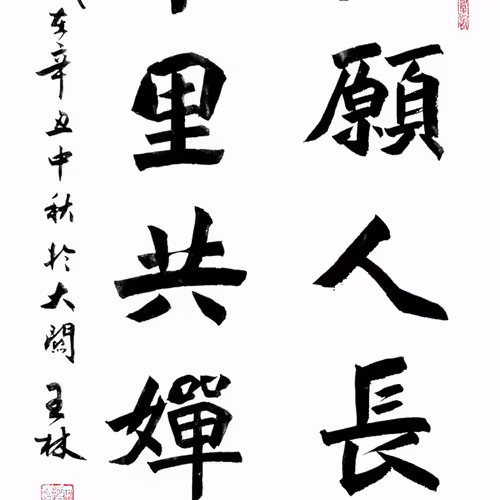 願人長
里共嬋
在辛丑中秋於大
王